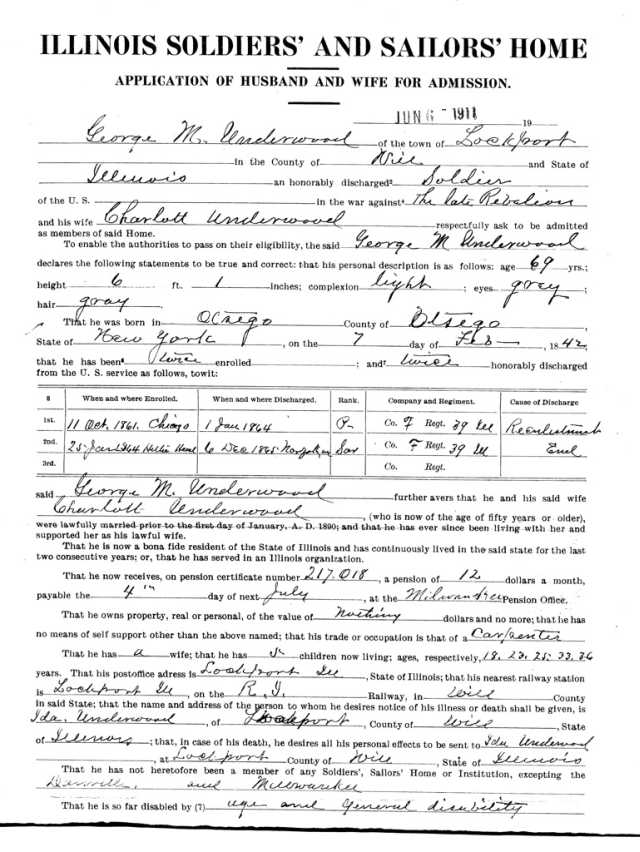 ILLINOIS SOLDIERS' AND SAILORS' HOME
APPLICATION OF HUSBAND AND WIFE FOR ADMISSION.
JUN 6 1911 19
George M. Underwood of the town of Lockport
in the County of Will and State of
Illinois an honorably discharged Soldier
of the U. S. in the war against The late Rebelion
and his wife Charlott Underwood respectfully ask to be admitted
as members of said Home.
To enable the authorities to pass on their eligibility, the said George M Underwood
declares the following statements to be true and correct: that his personal description is as follows: age 69 yrs.;
height 6 ft. 1 inches; complexion light ; eyes grey ;
hair gray
That he was born in County of Otsego ,
State of New York , on the 7 day of Feb , 1842;
that he has been twice enrolled ; and twice honorably discharged
from the U. S. service as follows, towit:
8 When and where Enrolled. When and where Discharged. Rank. Company and Regiment. Cause of Discharge
1st. 11 Oct. 1861. Chicago 1 Jan 1864 P Co. F Regt. 39 Ill Reenlistment
2nd. 25 Jan 1864 6 Dec 1865 Norfolk Co. F Regt. 39 Ill
3rd. Co. Regt.
said George M. Underwood further avers that he and his said wife
Charlott Underwood , (who is now of the age of fifty years or older),
were lawfully married prior to the first day of January, A. D. 1890; and that he has ever since been living with her and
supported her as his lawful wife.
That he is now a bona fide resident of the State of Illinois and has continuously lived in the said state for the last
two consecutive years; or, that he has served in an Illinois organization.
That he now receives, on pension certificate number 217.018 , a pension of 12 dollars a month,
payable the 4th day of next July , at the Milwaukee Pension Office.
That he owns property, real or personal, of the value of Nothing dollars and no more; that he has
no means of self support other than the above named; that his trade or occupation is that of a Carpenter
That he has a wife; that he has 5 children now living; ages, respectively, 18. 23. 25. 33. 36
years. That his postoffice adress is Lockport Ill , State of Illinois; that his nearest railway station
is Lockport Ill , on the R. I. Railway, in Will County
in said State; that the name and address of the person to whom he desires notice of his illness or death shall be given, is
Ida. Underwood , of Lockport , County of Will , State
of Illinois ; that, in case of his death, he desires all his personal effects to be sent to Ida Underwood
, at Lockport County of Will , State of Illinois
That he has not heretofore been a member of any Soldiers', Sailors' Home or Institution, excepting the
Danville and Milwaukee
That he is so far disabled by (7) age and General disability